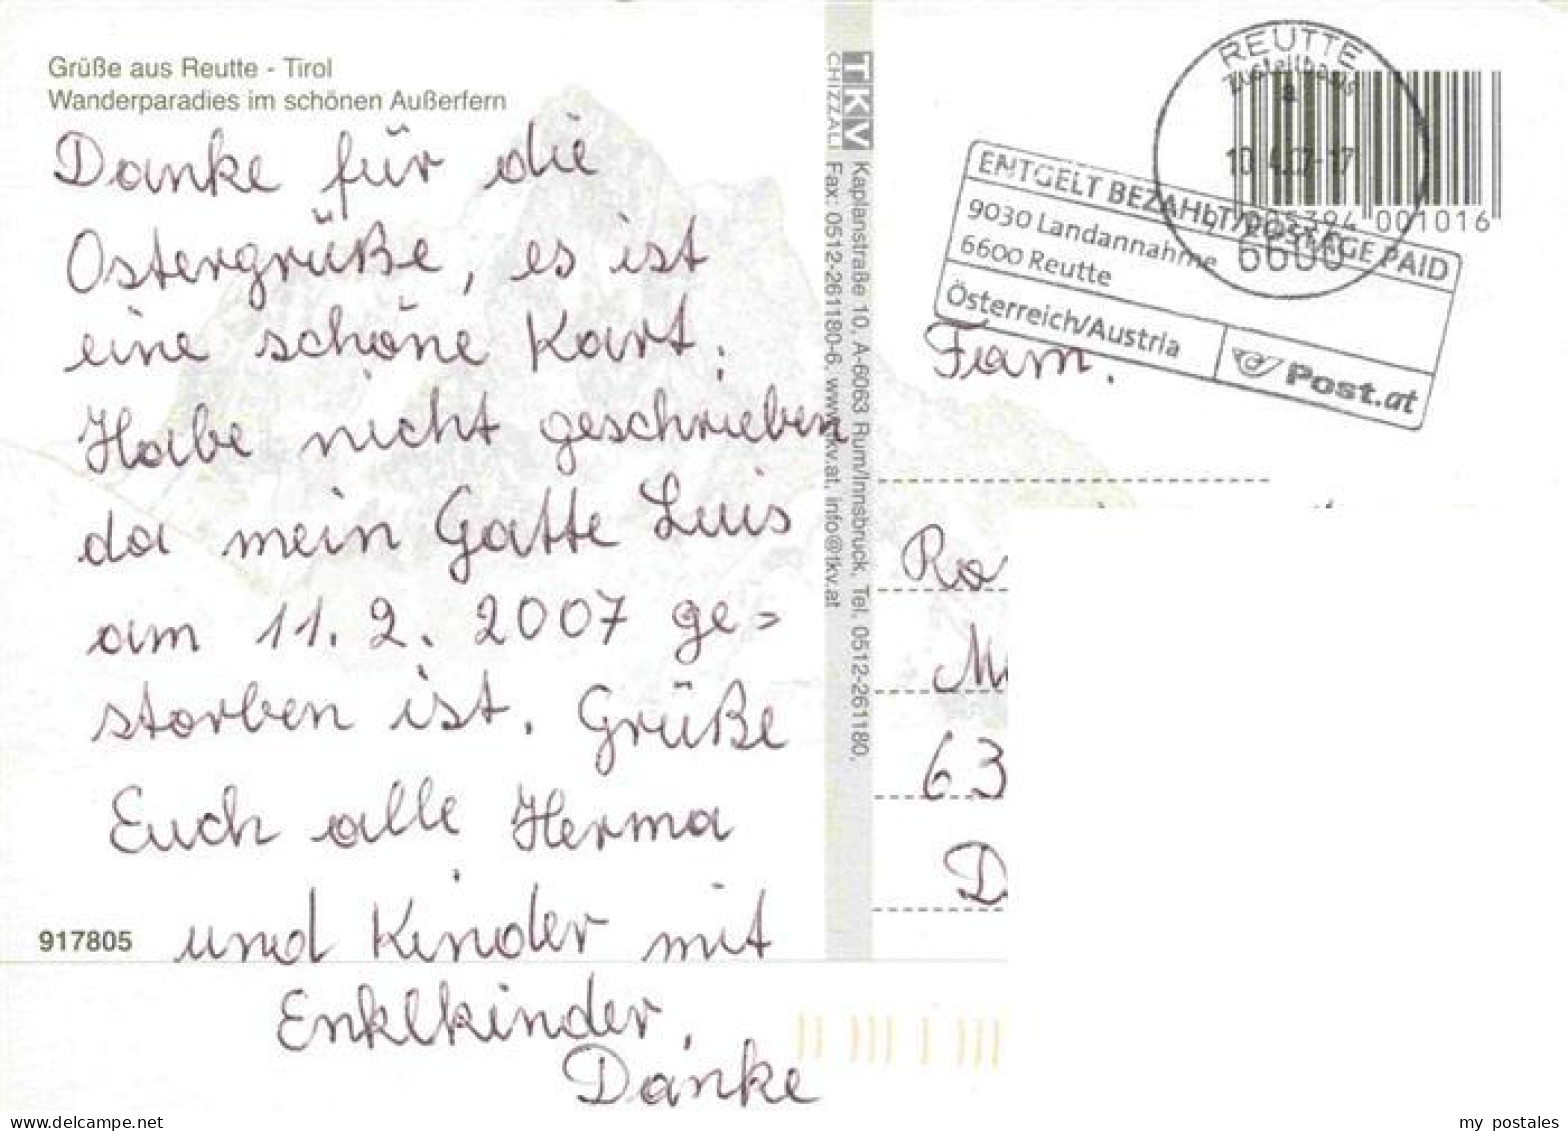 Grüße aus Reutte - Tirol
Wanderparadies im schönen Außerfern
Danke für die
Ostergrüße, es ist
eine schöne Kart.
Habe nicht geschrieben
da mein Gatte Luis
am 11. 2. 2007 ge=
storben ist. Grüße
Euch alle Herma
und Kinder mit
Enklkinder.
Danke
917805
TKV
CHIZZALI
Kaplanstraße 10, A-6063 Rum/Innsbruck, Tel. 0512-261180,
Fax: 0512-261180-6, www.tkv.at, info@tkv.at
REUTTE
a
10.4.07-17
6600
001016
ENTGELT BEZAHLT/POSTAGE PAID
9030 Landannahme
6600 Reutte
Österreich/Austria
Post.at
Fam.
Ro
M
63
D
my postales